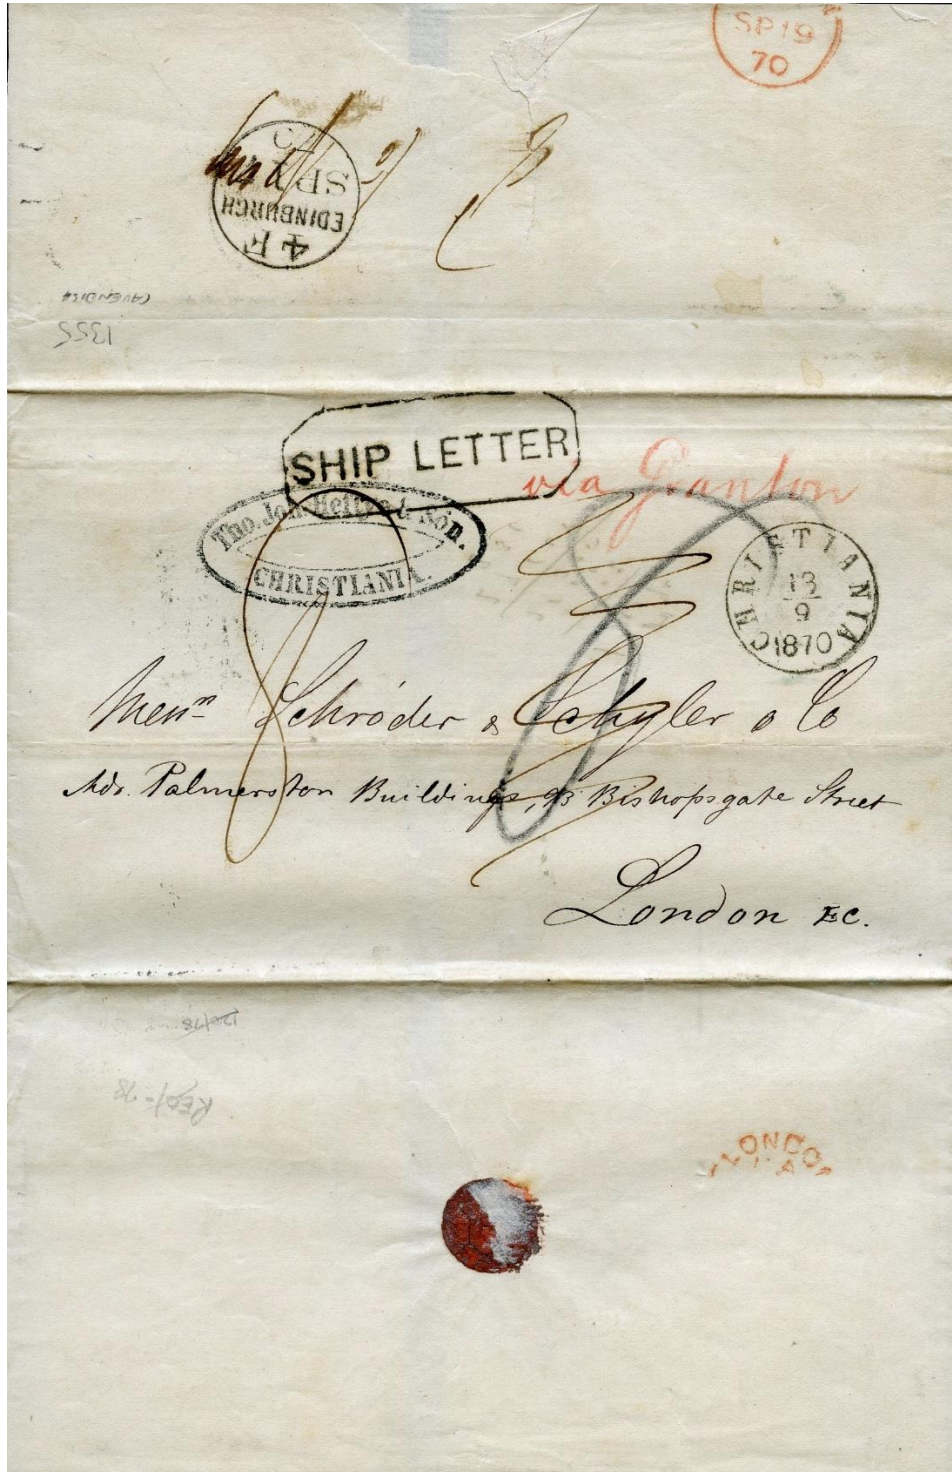 SP 19
70
4 E
EDINBURGH
SP
70
CAVENDISH
1355
SHIP LETTER
via Granton
Tho. Joh. Heftye & Sön.
CHRISTIANIA.
CHRISTIANIA
13
9
1870
8
8
Messrs Schröder & Schyler & Co
Adr. Palmerston Buildings, 93 Bishopsgate Street
London EC.
LONDON